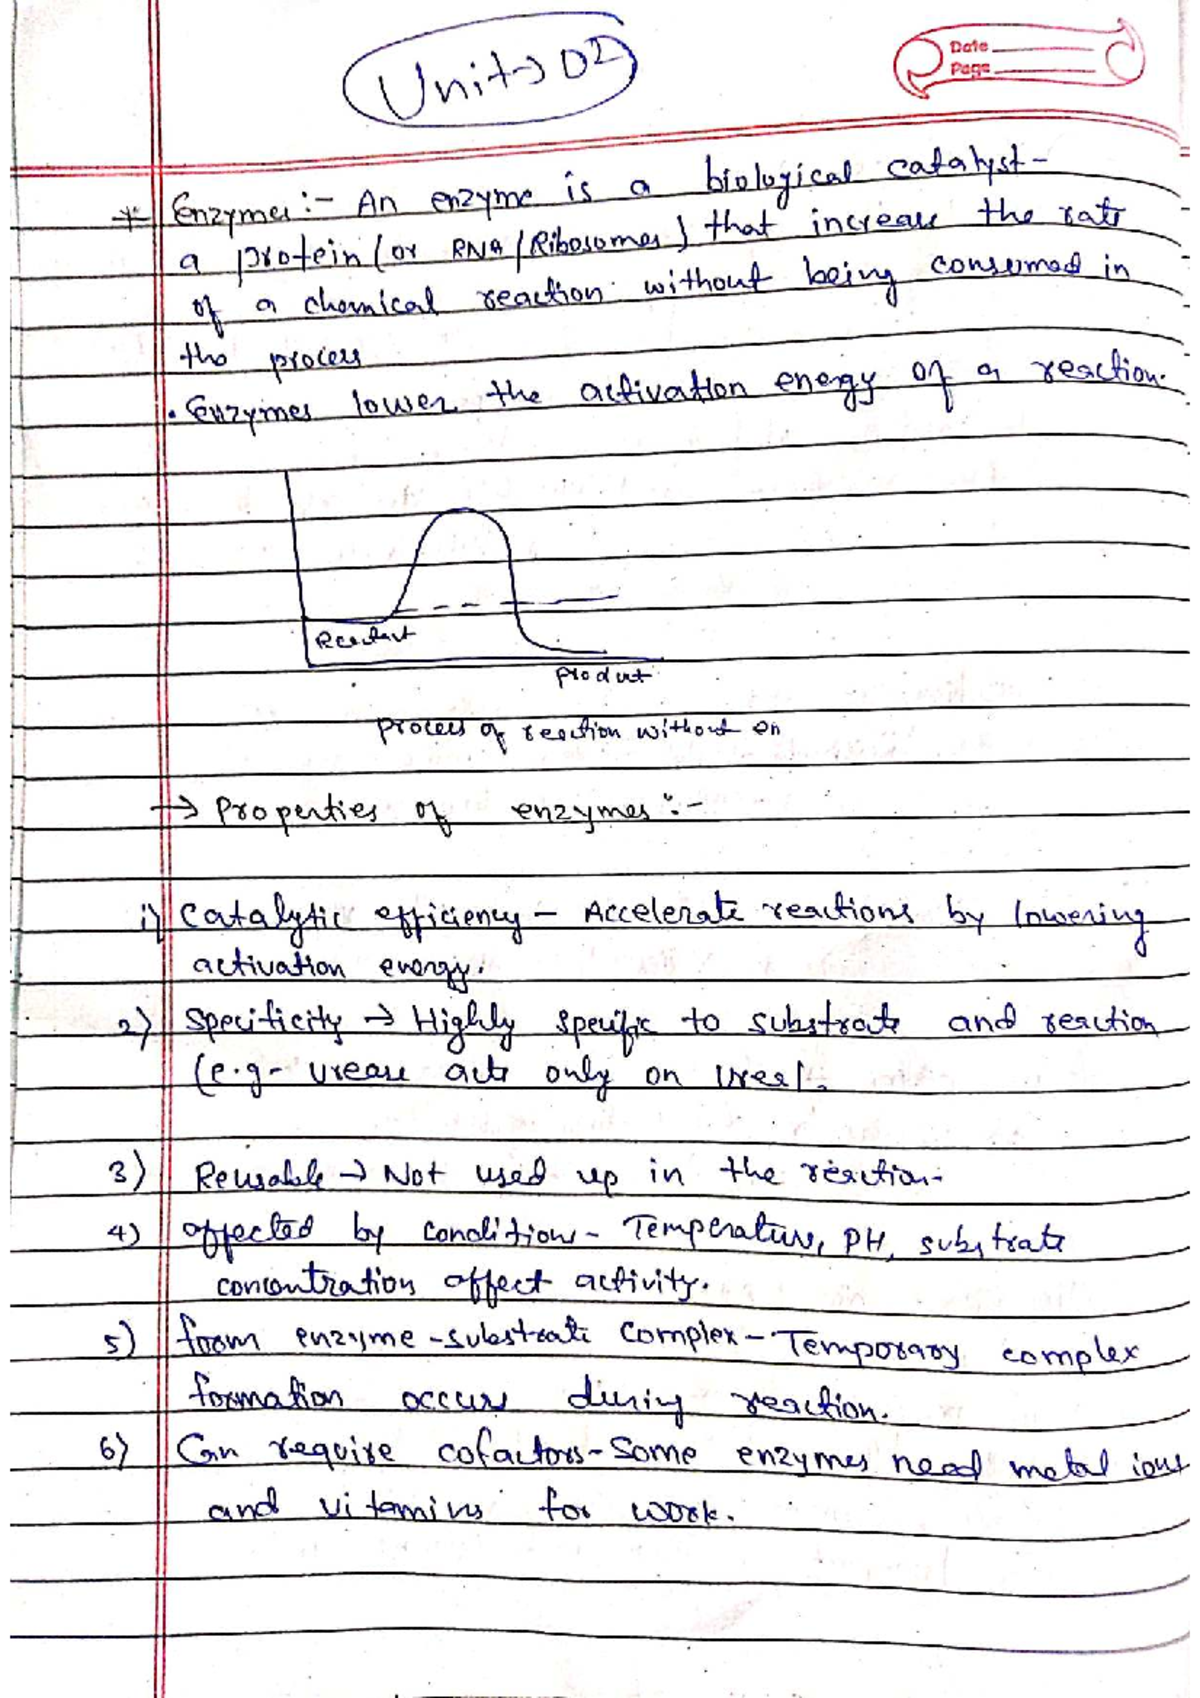 Unit → 02
Date
Page
* Enzymes :- An enzyme is a biological catalyst -
a protein (or RNA/Ribosomes) that increase the rate
of a chemical reaction without being consumed in
the process
. Enzymes lower the activation energy of a reaction.
Reactant
Product
process of reaction without en
→ Properties of enzymes :-
i) Catalytic efficiency - Accelerate reactions by lowering
activation energy.
2) Specificity → Highly specific to substrate and reaction
(e.g - urease acts only on urea).
3) Reusable → Not used up in the reaction -
4) affected by conditions - Temperature, PH, substrate
concentration affect activity.
5) form enzyme - substrate complex - Temporary complex
formation occurs during reaction.
6) Can require cofactors - Some enzymes need metal ions
and vitamins for work.